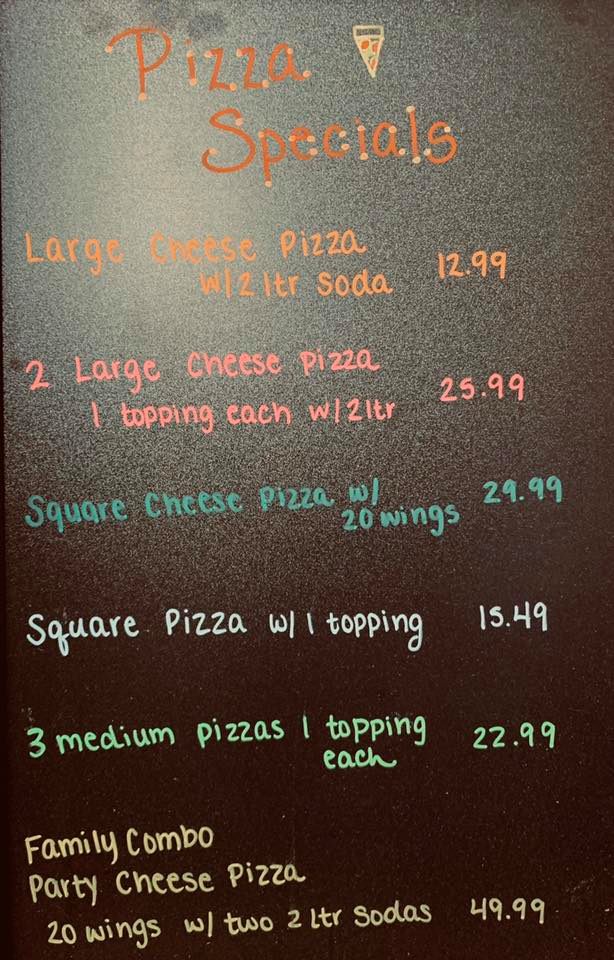 Pizza
Specials
Large Cheese Pizza
w/2 ltr Soda 12.99
2 Large Cheese pizza
1 topping each w/2ltr 25.99
Square Cheese Pizza w/ 29.99
20 wings
Square Pizza w/ 1 topping 15.49
3 medium pizzas 1 topping 22.99
each
Family Combo
Party Cheese Pizza
20 wings w/ two 2 ltr Sodas 49.99